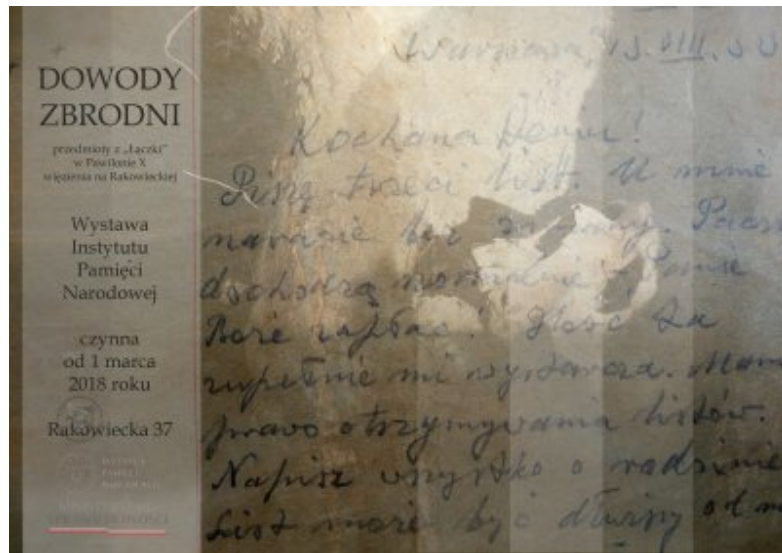 DOWODY
ZBRODNI
przedmioty z „Łączki”
w Pawilonie X
więzienia na Rakowieckiej
Wystawa
Instytutu
Pamięci
Narodowej
czynna
od 1 marca
2018 roku
Rakowiecka 37
INSTYTUT
PAMIĘCI
NARODOWEJ
Warszawa, 15.VIII.
Kochana
Piszę trzeci list. U mnie
narazie bez zmiany.
dochodzą normalnie - Panie
Boże zapłać! Ilość ta
zupełnie mi wystarcza. Mam
prawo otrzymywania listów.
Napisz wszystko o rodzinie
List może być dłuższy od